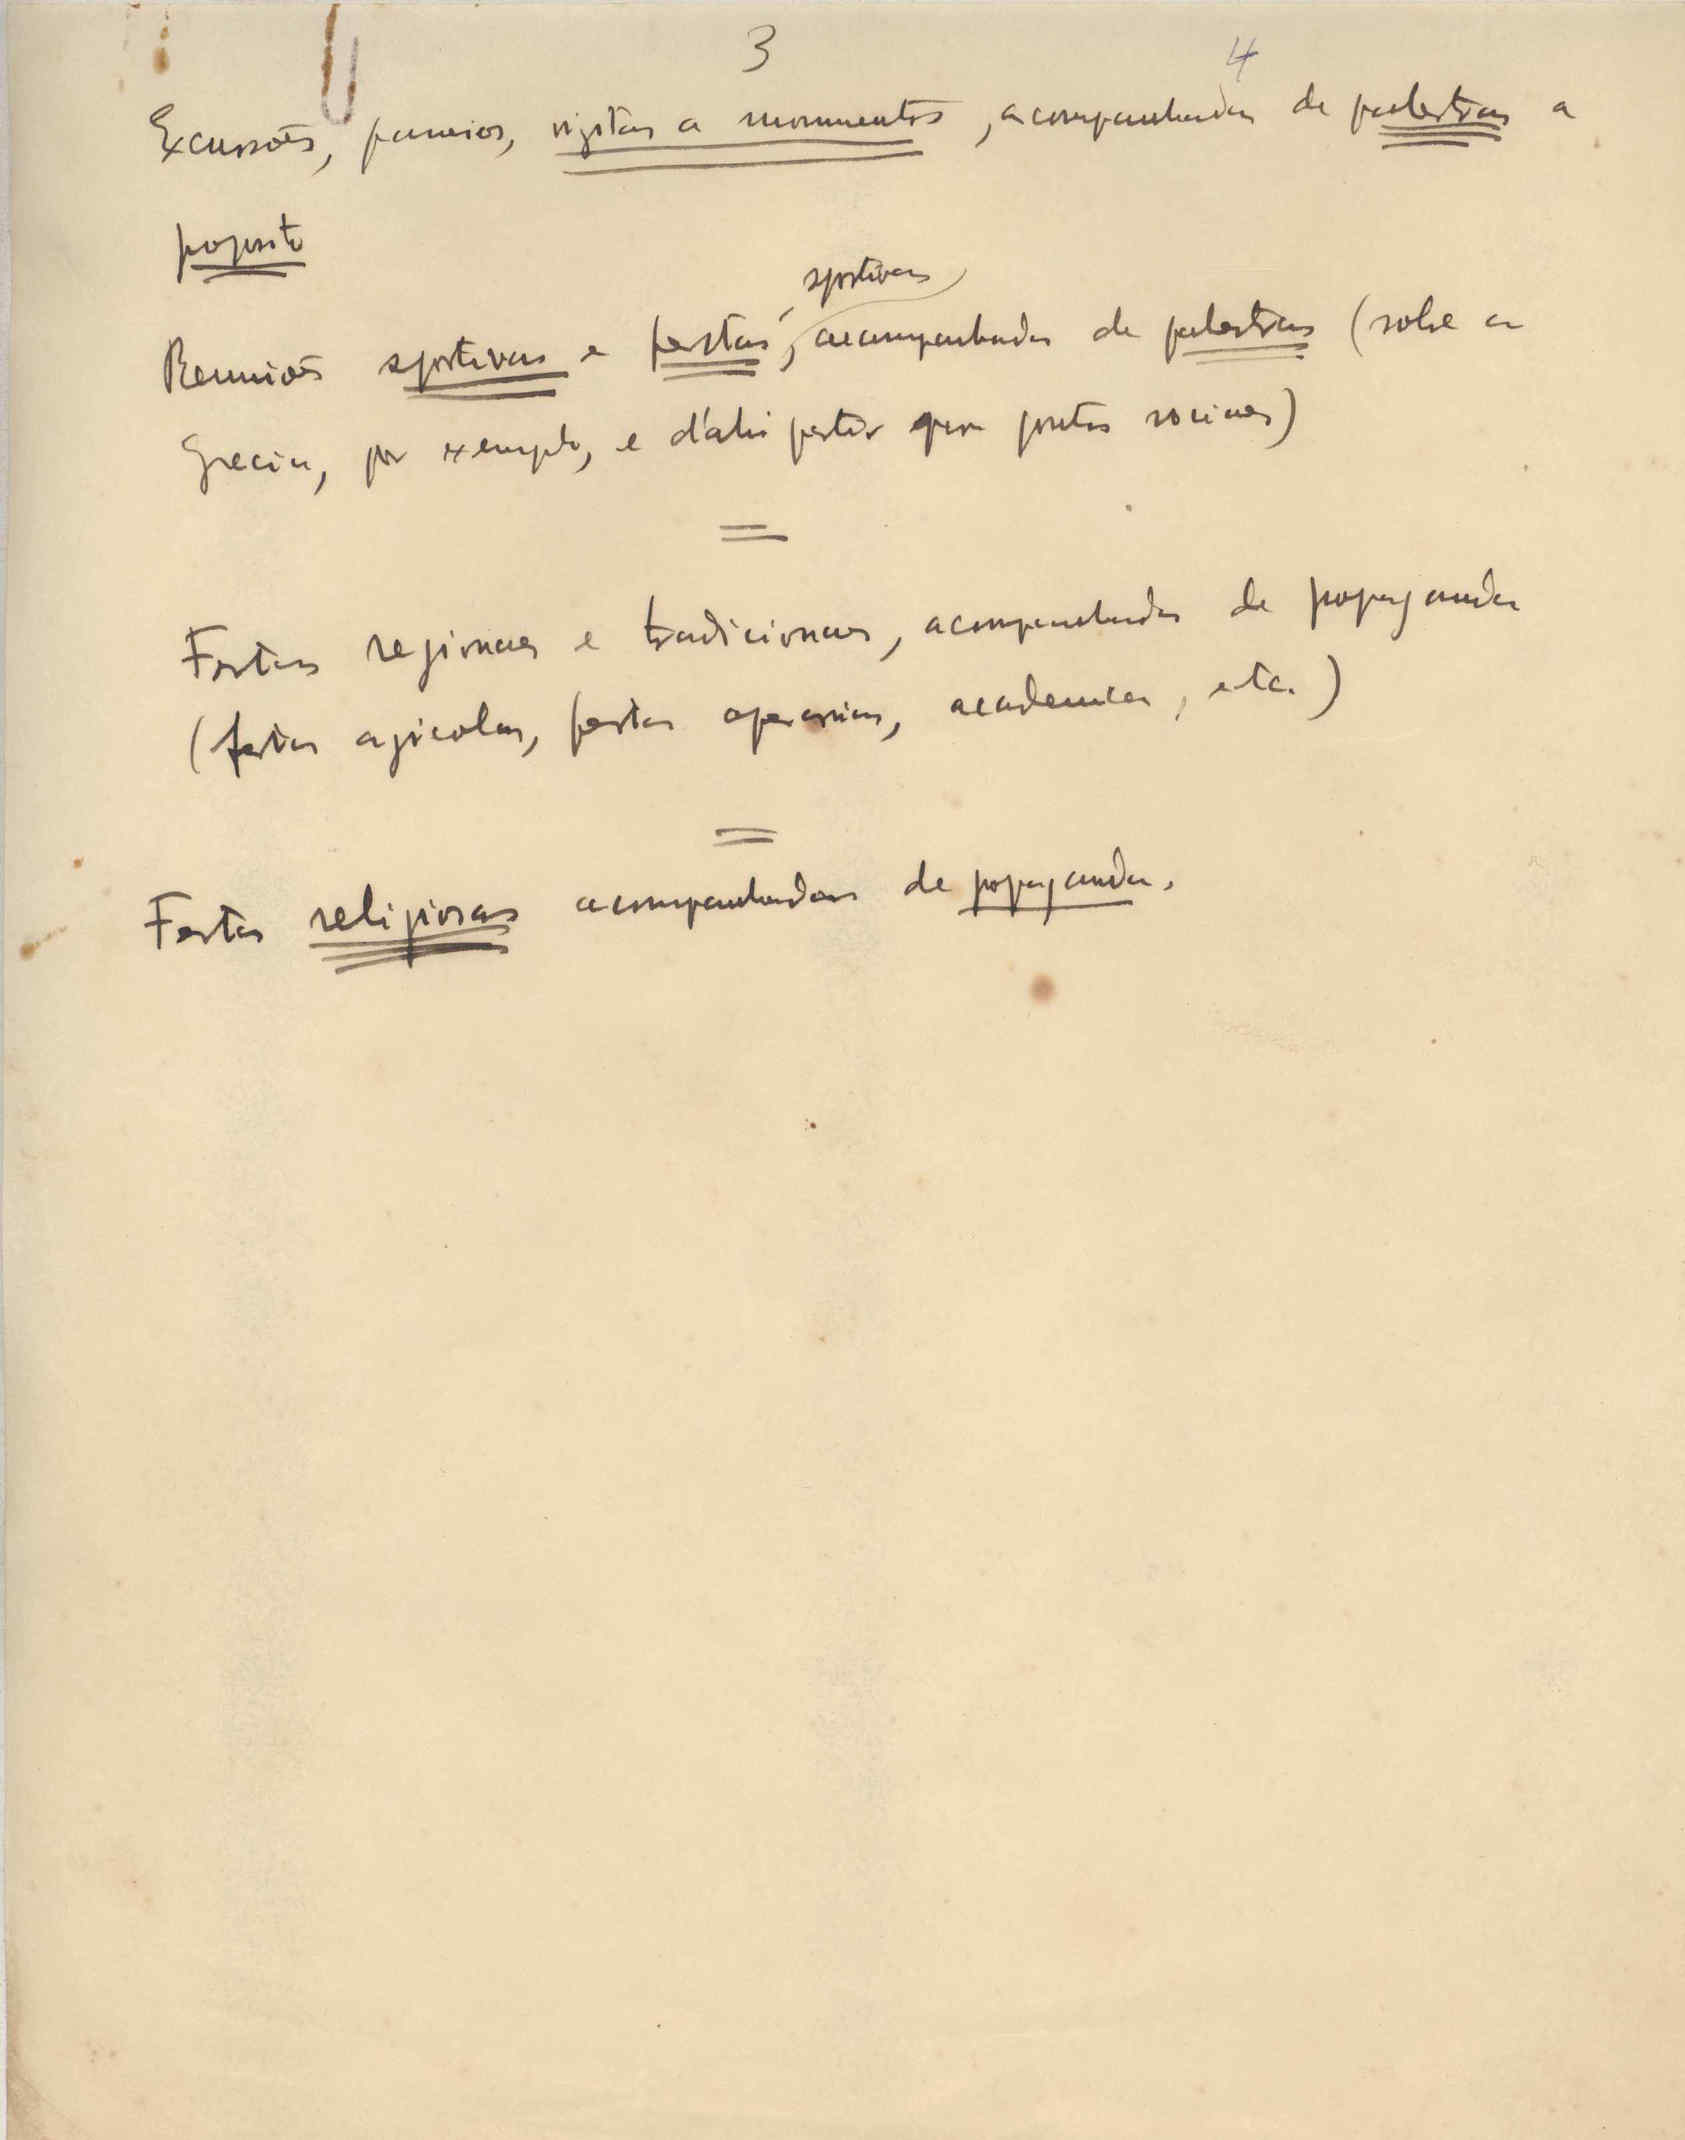 3 4
Excursões, passeios, visitas a monumentos, acompanhadas de palestras a
proposito
sportivas
Reuniões sportivas e festas, acompanhadas de palestras (sobre a
Grecia, por exemplo, e d'ahi partir para pontos sociaes)
Festas regionaes e tradicionaes, acompanhadas de propaganda
(festas agricolas, festas operarias, academicas, etc.)
Festas religiosas acompanhadas de propaganda.